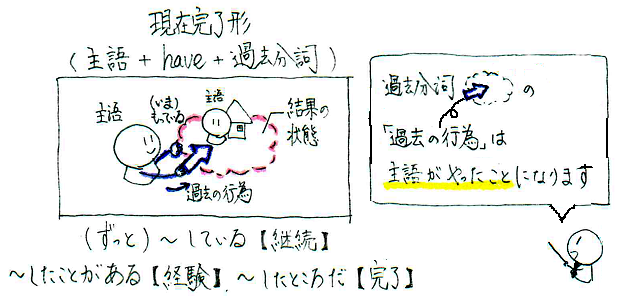 現在完了形
(主語 + have + 過去分詞)
主語
(いま)
もっている
主語
結果の
状態
過去の行為
(ずっと) ～している【継続】
～したことがある【経験】、～したところだ【完了】
過去分詞 の
「過去の行為」は
主語がやったことになります